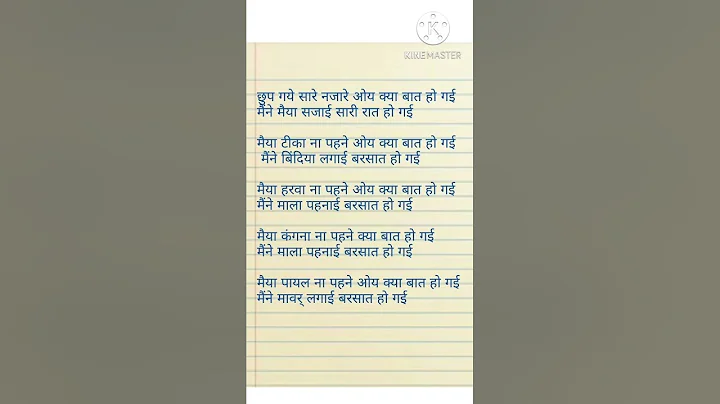 KINEMASTER
छुप गये सारे नजारे ओय क्या बात हो गई
मैंने मैया सजाई सारी रात हो गई
मैया टीका ना पहने ओय क्या बात हो गई
मैंने बिंदिया लगाई बरसात हो गई
मैया हरवा ना पहने ओय क्या बात हो गई
मैंने माला पहनाई बरसात हो गई
मैया कंगना ना पहने क्या बात हो गई
मैंने माला पहनाई बरसात हो गई
मैया पायल ना पहने ओय क्या बात हो गई
मैंने मावर् लगाई बरसात हो गई